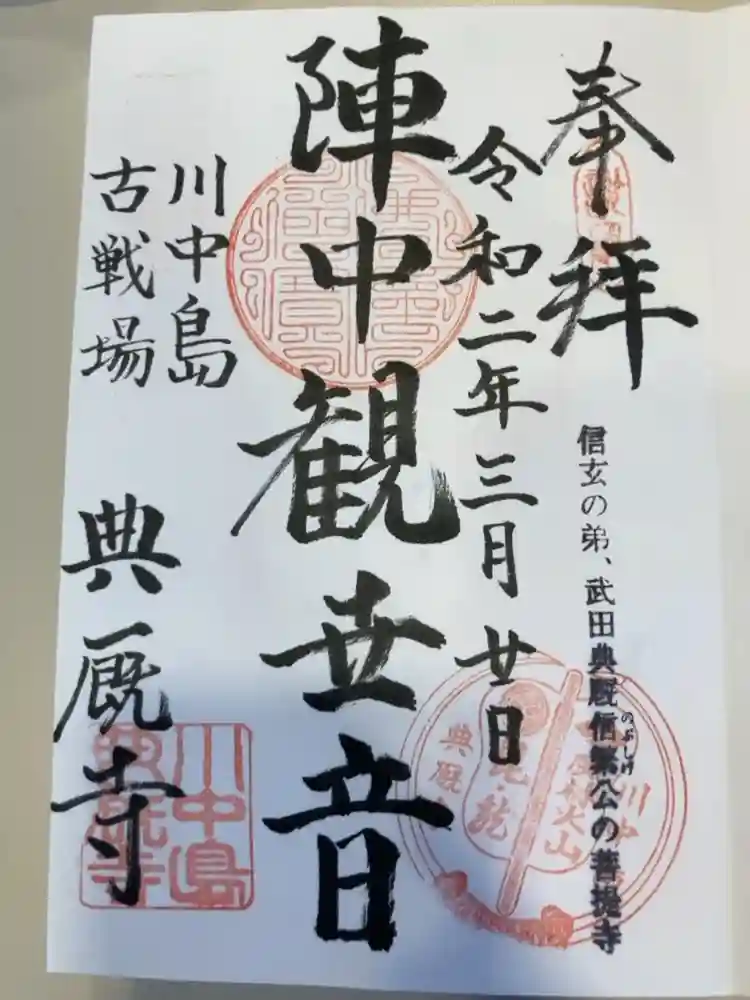 奉拝
信玄の弟、武田典厩信繁公の菩提寺
のぶしげ
令和二年三月廿日
陣中観世音
川中島
古戦場
典厩寺
川中島
典厩寺
典厩